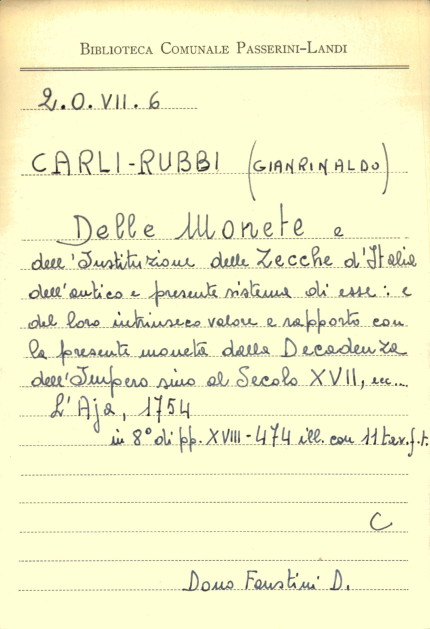 BIBLIOTECA COMUNALE PASSERINI-LANDI
2.O.VII.6
CARLI-RUBBI (GIANRINALDO)
Delle Monete e
dell'Instituzione delle Zecche d'Italia
dell'antico e presente sistema di esse: e
del loro intrinseco valore e rapporto con
la presente moneta dalla Decadenza
dell'Impero sino al Secolo XVII, ecc...
L'Aja, 1754
in 8° di pp. XVIII-474 ill. con 11 tav. f.t.
C
Dono Faustini D.